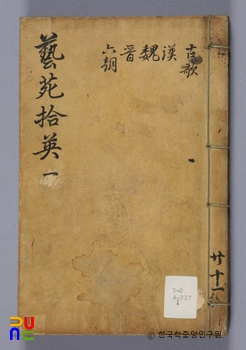 藝苑拾英 一
古歌
漢
魏
晉
六朝
共十一
한국학중앙연구원